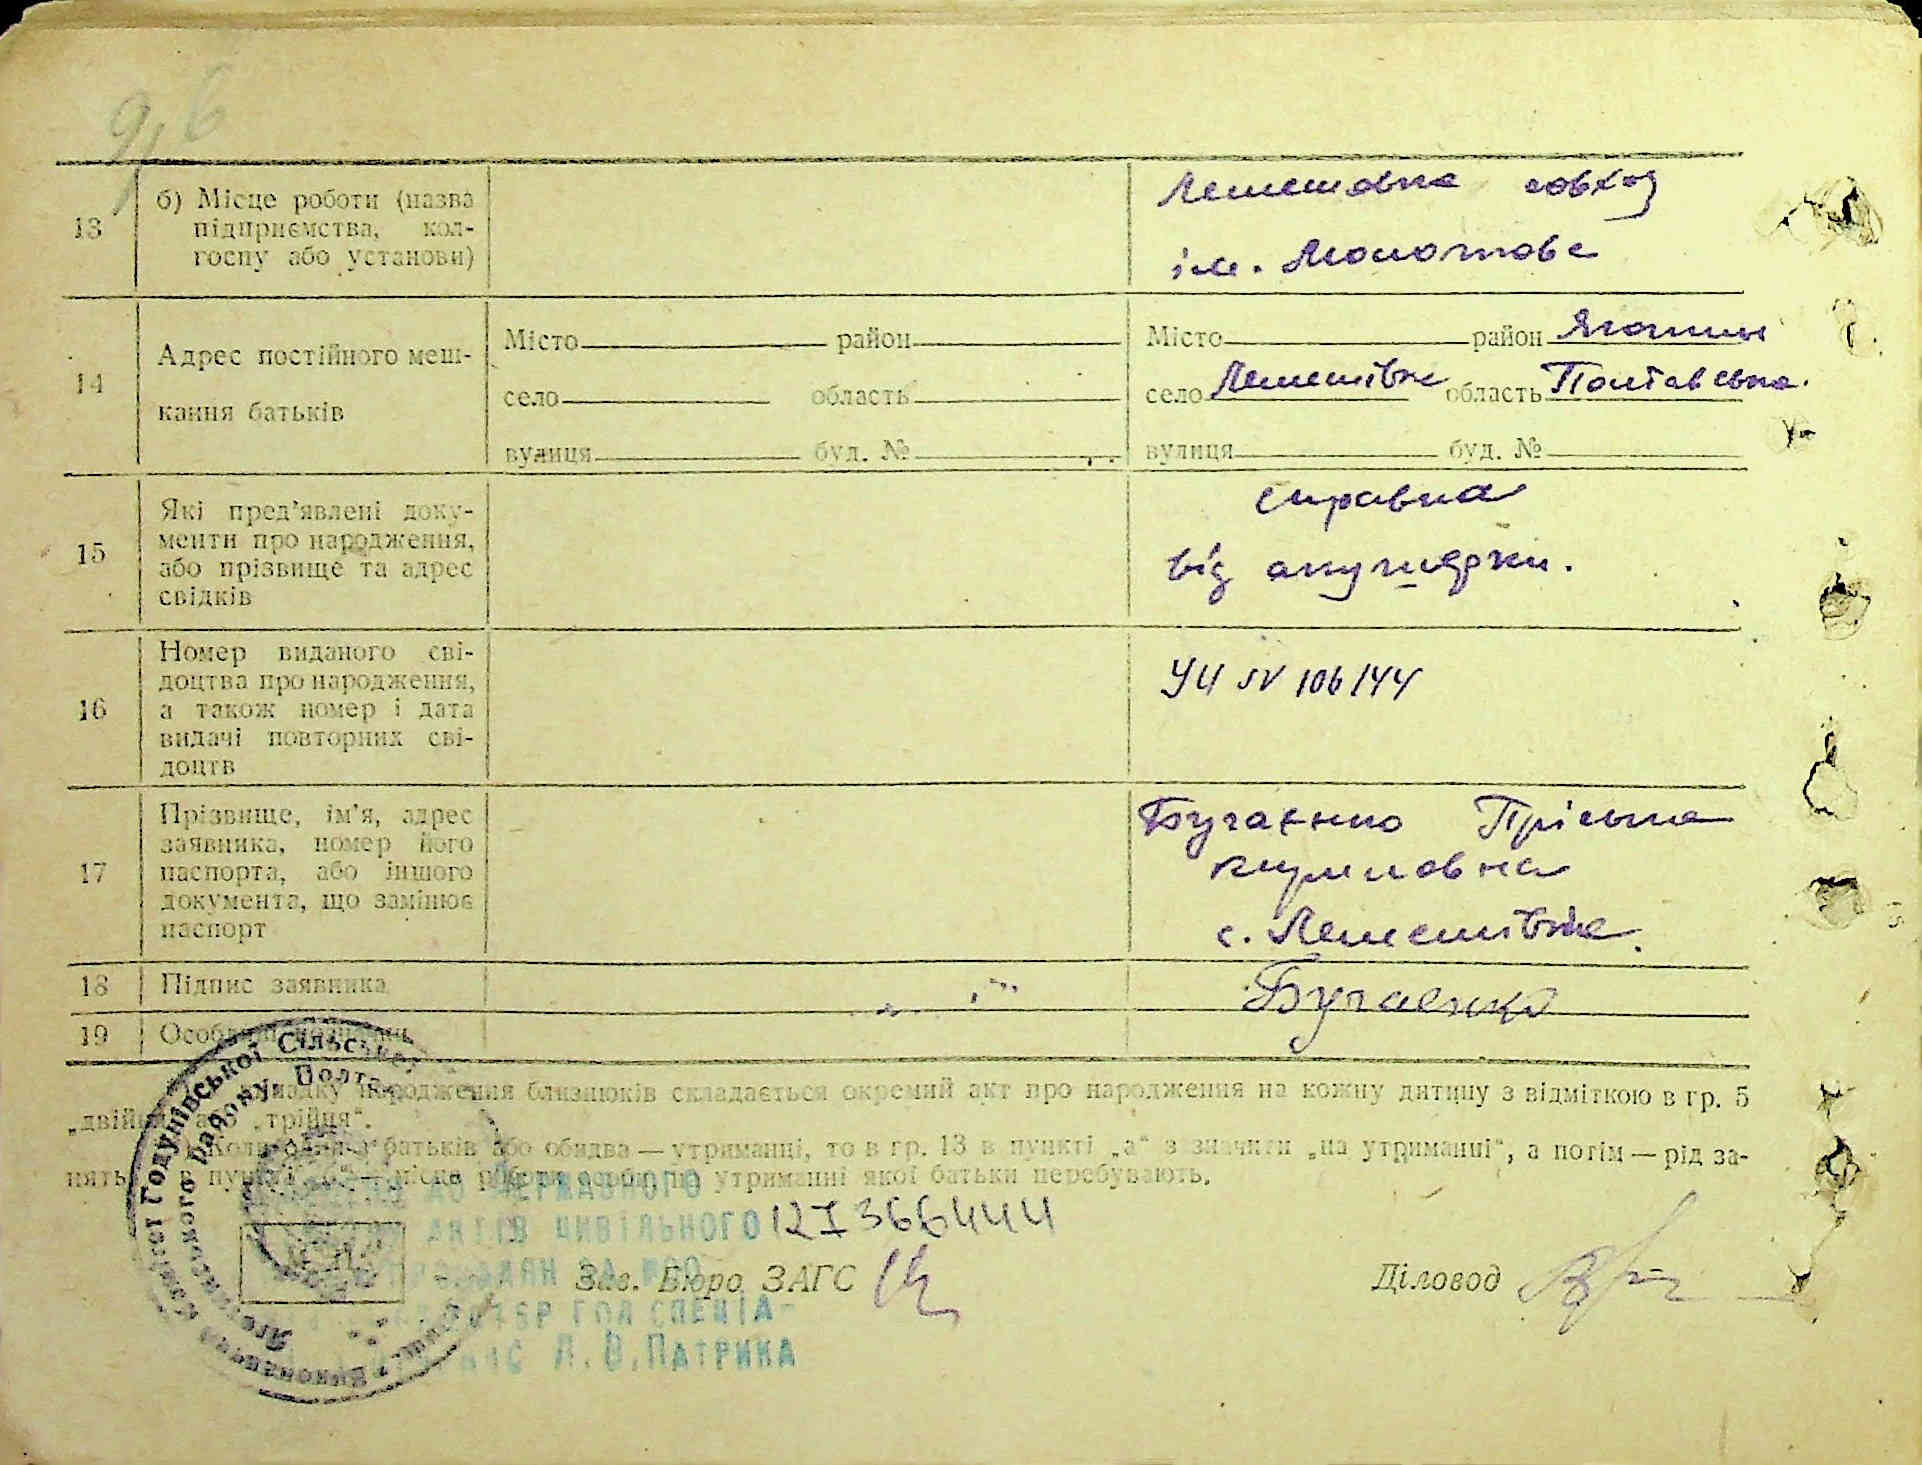 96
13
б) Місце роботи (назва
підприємства, кол-
госпу або установи)
Лемешовка совхоз
ім. Молотова
14
Адрес постійного меш-
кання батьків
Місто район
село область
вулиця буд. №
Місто район Яготин
село Лемешівка область Полтавська.
вулиця буд. №
15
Які пред'явлені доку-
менти про народження,
або прізвище та адрес
свідків
справка
від акушерки.
16
Номер виданого сві-
доцтва про народження,
а також номер і дата
видачі повторних сві-
доцтв
УЧ IV 106144
17
Прізвище, ім'я, адрес
заявника, номер його
паспорта, або іншого
документа, що замінює
паспорт
Бугаєнко Пріська
кириловна
с. Лемешівка.
18
Підпис заявника
Бугаенко
19
народження близнюків складається окремий акт про народження на кожну дитину з відміткою в гр. 5
„трійня“.
батьків або обидва — утриманці, то в гр. 13 в пункті „а“ зазначити „на утриманні“, а потім — рід за-
нять, в пункті „б“ — місце роботи особи, на утриманні якої батьки перебувають.
Годунівської Сільської
Яготинського району, Полт
Виконавчий Комітет
до Державного
актів цивільного
127366444
громадян за
Зав. Бюро ЗАГС
Діловод
гол спеціа-
Л.В.Патрика